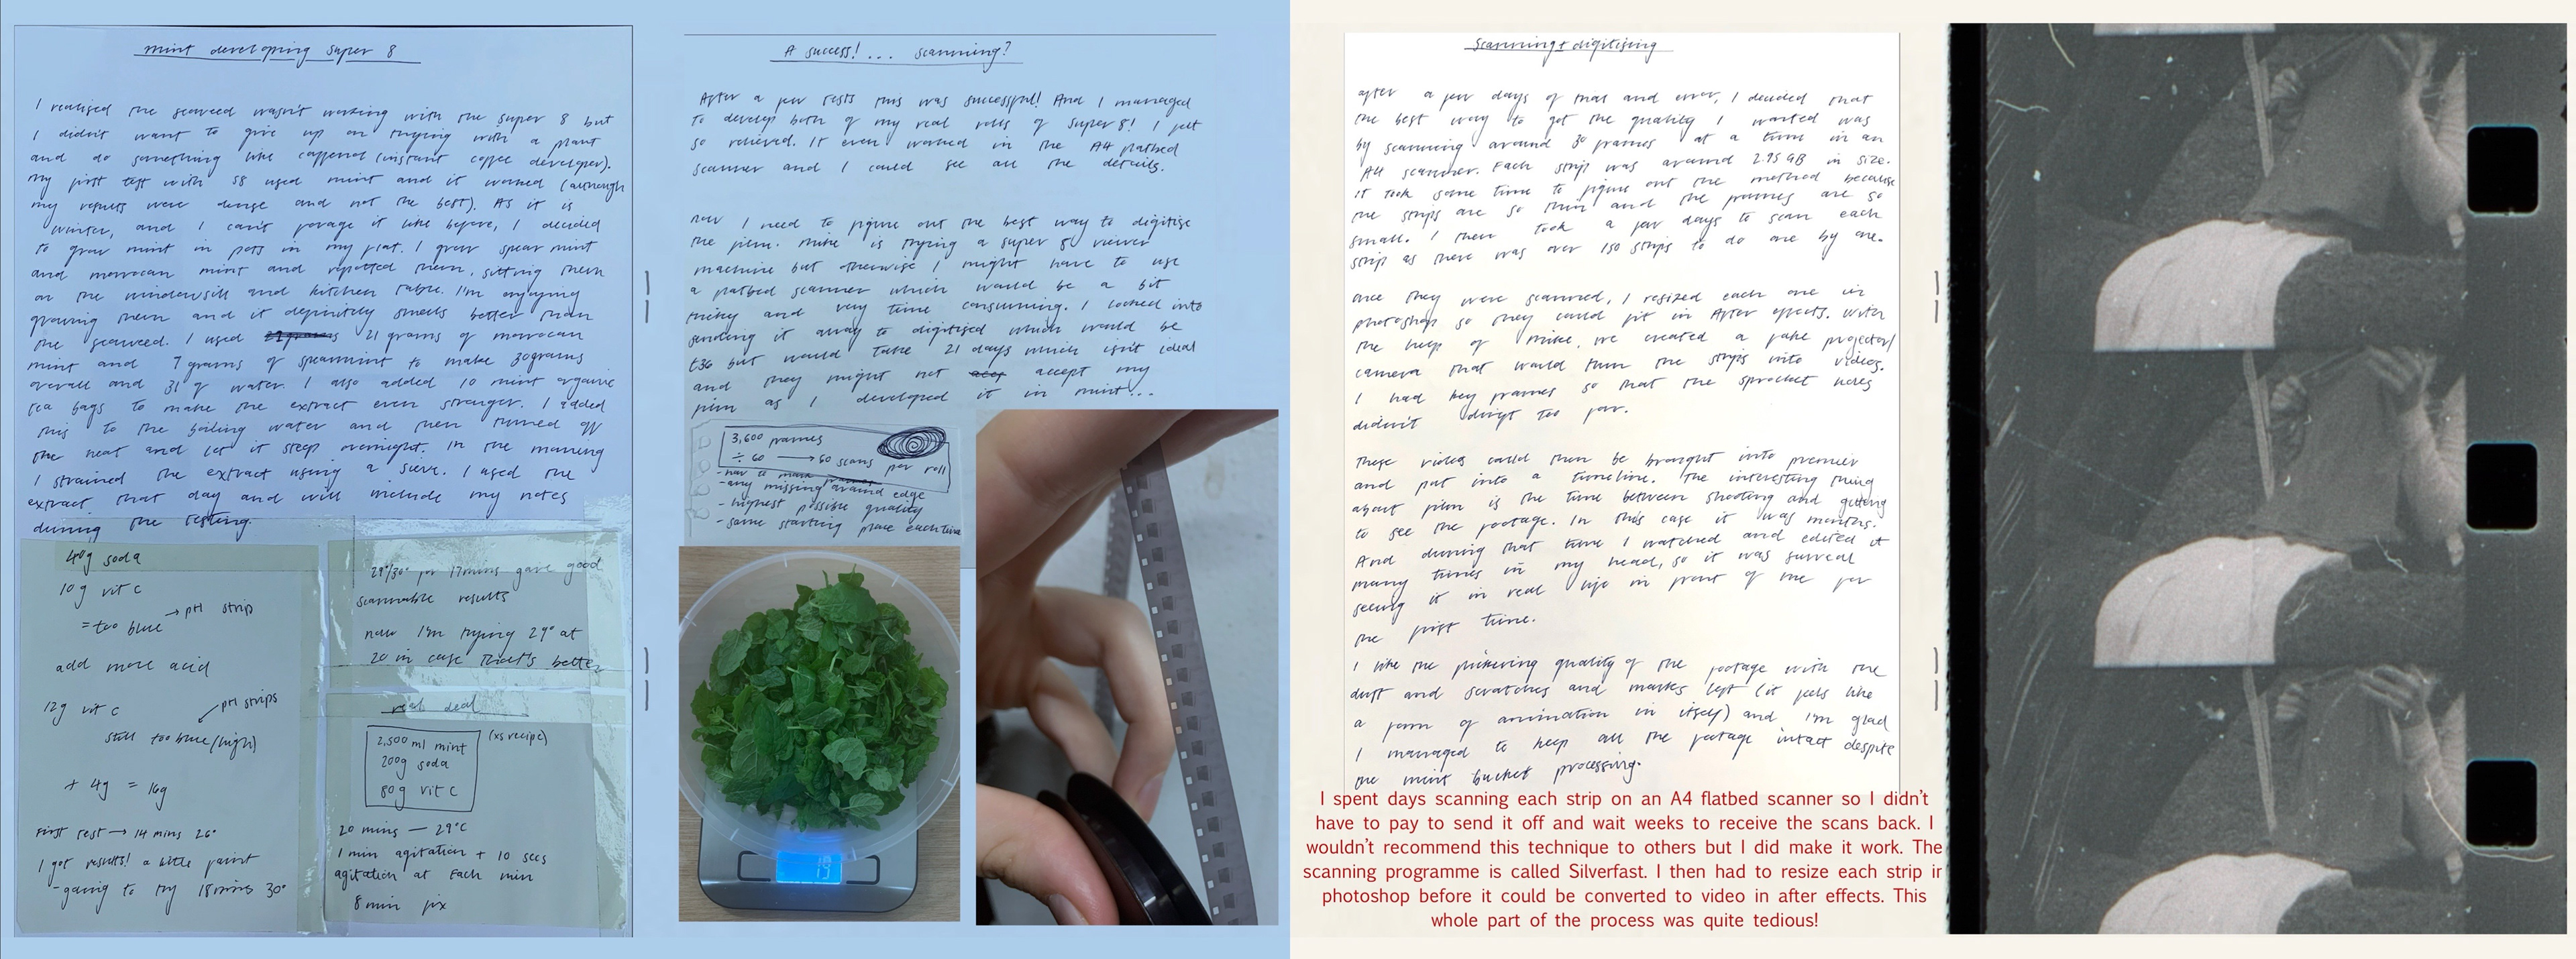 mint developing super 8
I realised the seaweed wasn't working with the super 8 but
I didn't want to give up on trying with a plant
and do something like caffenol (instant coffee developer).
My first test with 58 used mint and it worked (although
my results were dense and not the best). As it is
winter, and I can't forage it like before, I decided
to grow mint in pots in my flat. I grew spear mint
and moroccan mint and repotted them, sitting them
on the windowsill and kitchen table. I'm enjoying
growing them and it definitely smells better than
the seaweed. I used 21 grams of moroccan
mint and 7 grams of spearmint to make 30grams
overall and of water. I also added 10 mint organic
tea bags to make the extract even stronger. I added
this to the boiling water and then turned off
the heat and let it steep overnight. In the morning
I strained the extract using a sieve. I used the
extract that day and will include my notes
during the testing.
40g soda
10g vit c
→ pH strip
= too blue
add more acid
12g vit c
pH strips
still too blue (high)
+ 4g = 16g
First test → 14 mins 26°
I got results! a little faint
- going to try 18mins 30°
29°/30° for 17mins gave good
scannable results
now I'm trying 29° at
20 in case that's better
real deal
2,500 ml mint
200g soda
80g vit c
(x5 recipe)
20 mins — 29°C
1 min agitation + 10 secs
agitation at each min
8 min fix
A success! ... scanning?
After a few tests this was successful! And I managed
to develop both of my real rolls of super 8! I felt
so relieved. It even worked in the A4 flatbed
scanner and I could see all the details.
now I need to figure out the best way to digitise
the film. Mike is trying a super 8 viewer
machine but otherwise I might have to use
a flatbed scanner which would be a bit
tricky and very time consuming. I looked into
sending it away to digitised which would be
£36 but would take 21 days which isn't ideal
and they might not accept my
film as I developed it in mint...
3,600 frames
÷ 60 → 60 scans per roll
- any missing around edge
- highest possible quality
- same starting place each time
19
Scanning + digitising
after a few days of trial and error, I decided that
the best way to get the quality I wanted was
by scanning around 30 frames at a time in an
A4 scanner. Each strip was around 2.95 GB in size.
It took some time to figure out the method because
the strips are so thin and the frames are so
small. I then took a few days to scan each
strip as there was over 150 strips to do one by one.
once they were scanned, I resized each one in
photoshop so they could fit in After effects. With
the help of Mike, we created a fake projector/
camera that would turn the strips into videos.
I had key frames so that the sprocket holes
didn't drift too far.
These videos could then be brought into premier
and put into a timeline. The interesting thing
about film is the time between shooting and getting
to see the footage. In this case it was months.
And during that time I watched and edited it
many times in my head, so it was surreal
seeing it in real life in front of me for
the first time.
I like the flickering quality of the footage with the
dust and scratches and marks left (it feels like
a form of animation in itself) and I'm glad
I managed to keep all the footage intact despite
the mint bucket processing.
I spent days scanning each strip on an A4 flatbed scanner so I didn't
have to pay to send it off and wait weeks to receive the scans back. I
wouldn't recommend this technique to others but I did make it work. The
scanning programme is called Silverfast. I then had to resize each strip in
photoshop before it could be converted to video in after effects. This
whole part of the process was quite tedious!